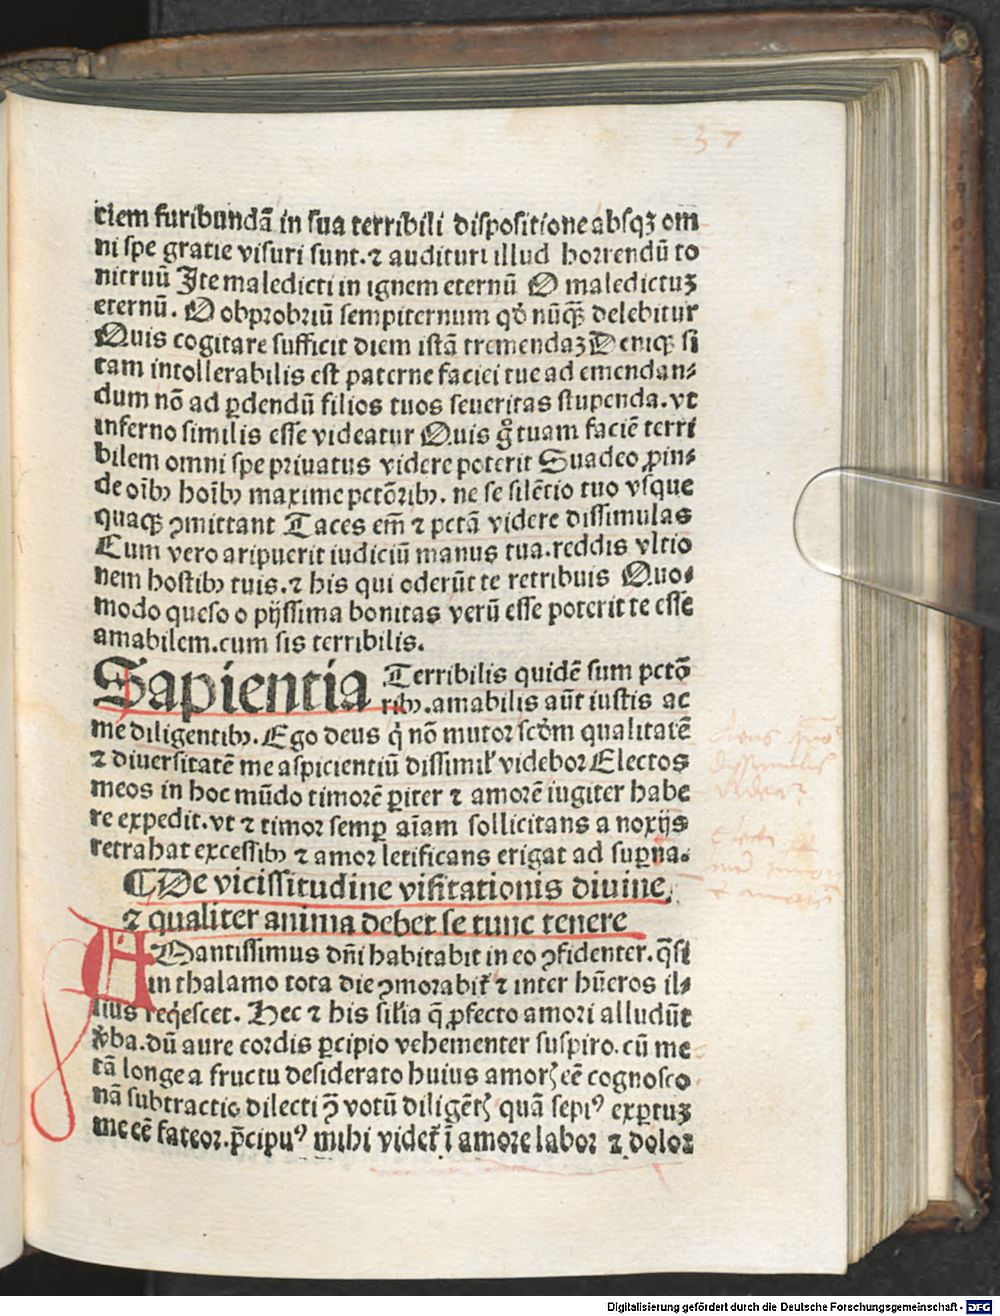 37
ciem furibundã in sua terribili dispositione absqꝫ om
ni spe gratie visuri sunt. ⁊ audituri illud horrendū to
nitruū Ite maledicti in ignem eternū O maledictuꝫ
eternū. O obprobriū sempiternum qđ nūqꝫ delebitur
Quis cogitare sufficit diem istã tremendaꝫ Deniqꝫ si
tam intollerabilis est paterne faciei tue ad emendan⸗
dum nõ ad ꝑdendū filios tuos seueritas stupenda. vt
inferno similis esse videatur Quis g̊ tuam faciē terri
bilem omni spe priuatus videre poterit Suadeo ꝓin⸗
de oīb⁹ hoīb⁹ maxime pctõrib⁹. ne se silētio tuo vsque
quaqꝫ ꝯmittant Taces em̄ ⁊ pctã videre dissimulas
Cum vero aripuerit iudiciū manus tua. reddis vltio
nem hostib⁹ tuis. ⁊ his qui oderūt te retribuis Quo⸗
modo queso o pijssima bonitas verū esse poterit te esse
amabilem. cum sis terribilis.
Sapientia Terribilis quidē sum pctõ
rib⁹. amabilis aūt iustis ac
me diligentib⁹. Ego deus q̇ nõ mutor scđm qualitatē
⁊ diuersitatē me aspicientiū dissimilꝭ videbor Electos
meos in hoc mūdo timorē ꝑiter ⁊ amorē iugiter habe
re expedit. vt ⁊ timor semꝑ aīam sollicitans a noxijs
retrahat excessib⁹ ⁊ amor letificans erigat ad suꝑna.
¶ De vicissitudine visitationis diuine,
⁊ qualiter anima debet se tunc tenere
AMantissimus dn̄i habitabit in eo ꝯfidenter. q̄si
in thalamo tota die ꝯmorabiť ⁊ inter hūeros il⸗
lius reqescet. Hec ⁊ his silꝭia q̄ ꝓfecto amori alludūt
ꝟba. dū aure cordis ꝑcipio vehementer suspiro. cū me
tã longe a fructu desiderato huius amorꝭ eē cognosco
nã subtractio dilecti ꝯ̄ votū diligētꝭ quã sepi⁹ exꝑtuꝫ
me eē fateor. p̄cipu⁹ mihi videť ī amore labor ⁊ dolor
dissimules
Digitalisierung gefördert durch die Deutsche Forschungsgemeinschaft - DFG